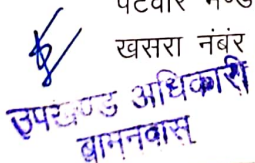 पटवार
खसरा नंबर
उपखण्ड अधिकारी
बामनवास